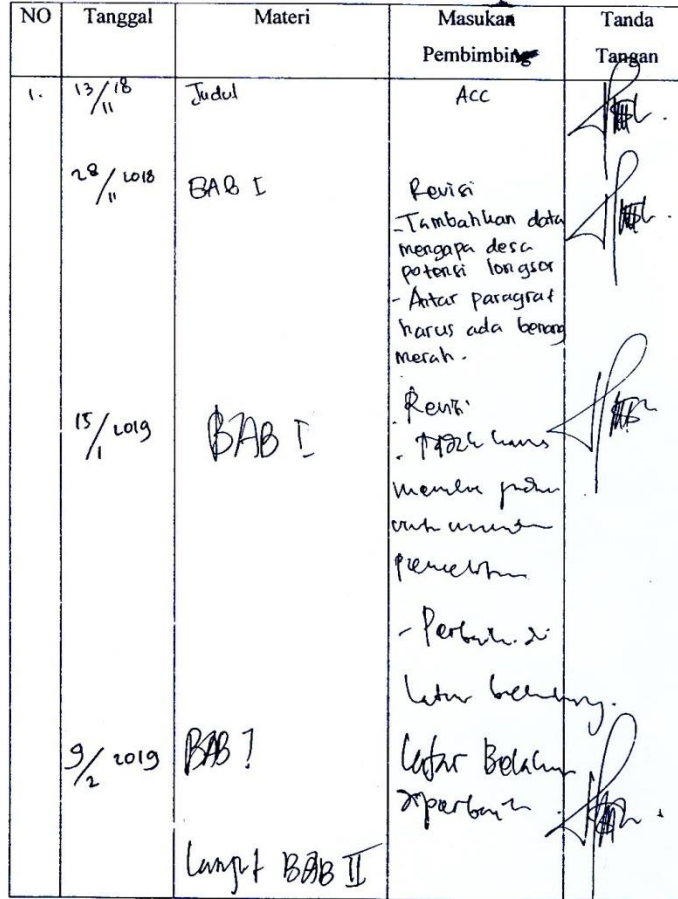 NO Tanggal Materi Masukan Pembimbing Tanda Tangan
1. 13/11 18 Judul ACC
28/11 2018 BAB I Revisi
- Tambahkan data
mengapa desa
potensi longsor
- Antar paragraf
harus ada benang
merah.
15/1 2019 BAB I Revisi
-
harus
- Perbaiki di
latar belakang.
9/2 2019 BAB I Latar Belakang
diperbaiki
Lanjut BAB II